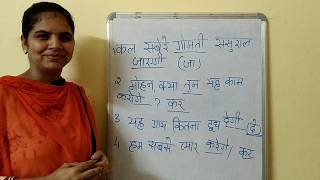 1 कल सबेरे गोमती ससुराल
जाएगी (जा)
2 मोहन, क्या तुम यह काम
करोगे ? कर
3 यह गाय कितना दूध देगी (दे)
4 हम सबसे प्यार करेंगे/ कर